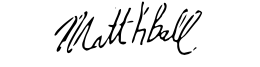 Matt K Ball